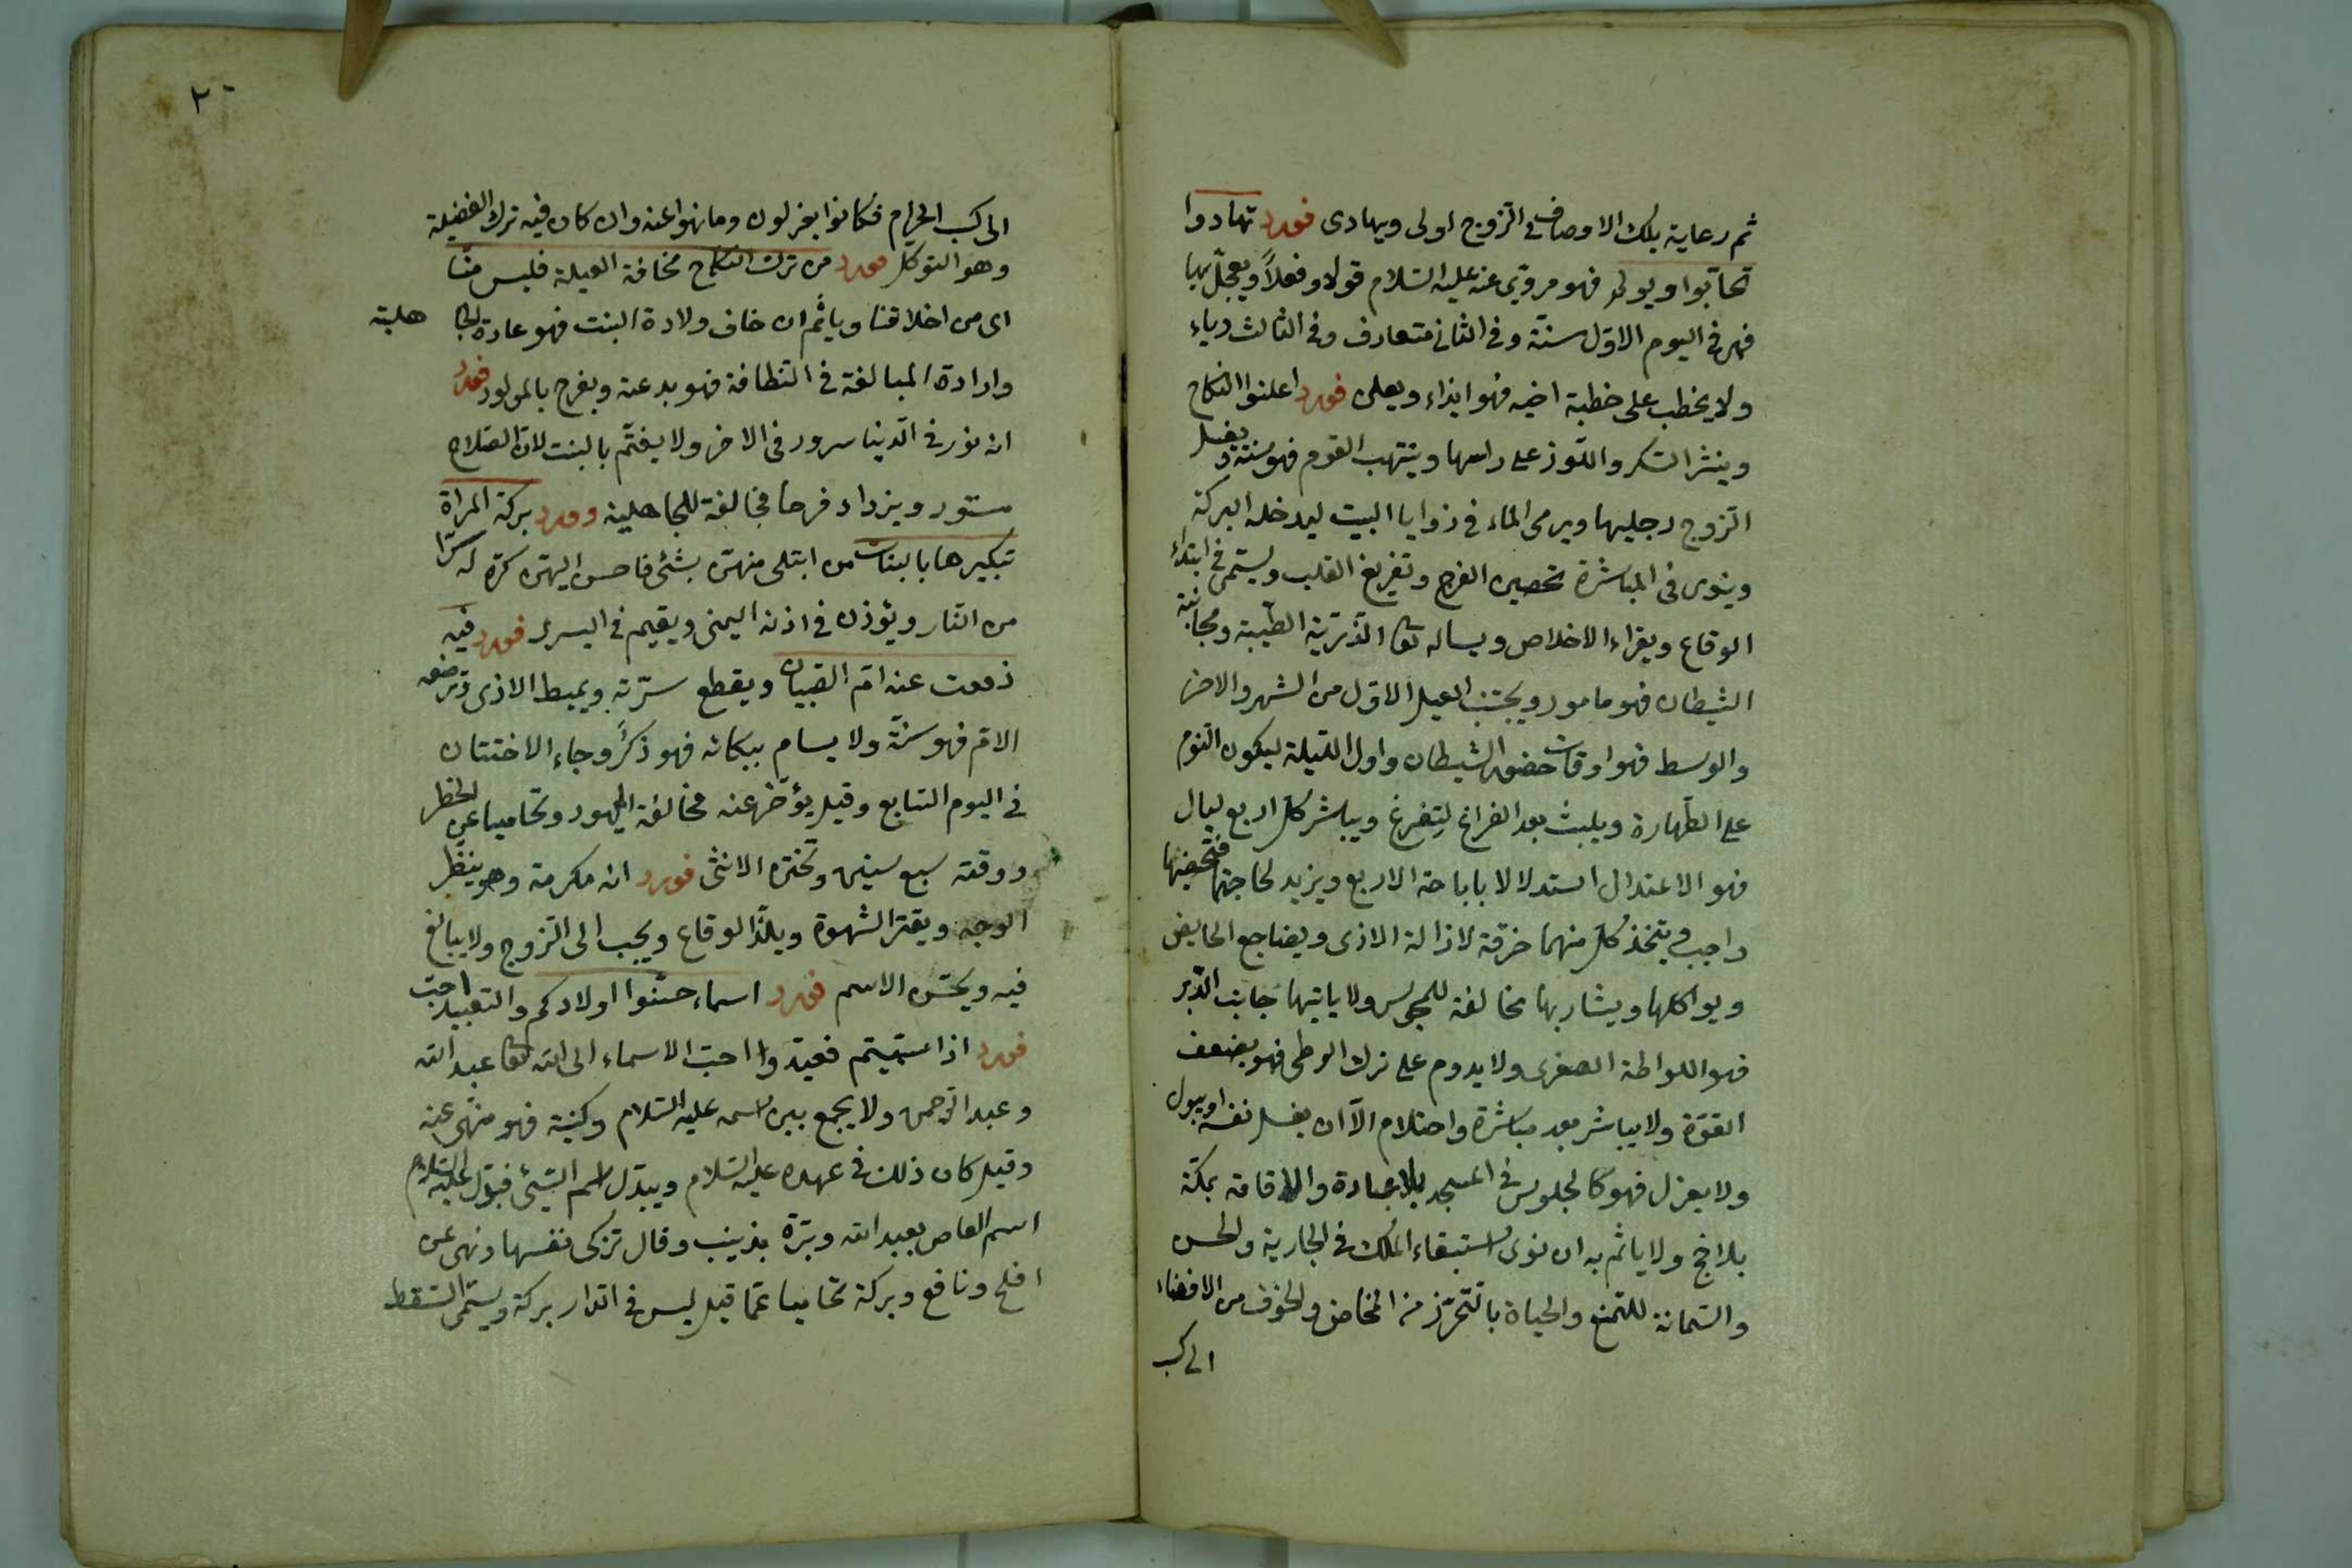 ثم رعاية تلك الاوصاف في الزوج اولى ويهادى فورد تهادوا
تحابوا ويولم فهو مروي عنه عليه السلام قولا وفعلاً ويعجل بها
فهو في اليوم الاول سنة وفي الثاني متعارف وفي الثالث رياء
ولا يخطب على خطبة اخيه فهو ايذاء ويعلن فورد اعلنوا النكاح
وينثر السكر واللوز على راسها وينتهب القوم فهو سنة ويغسل
الزوج رجليها ويرمى الماء في زوايا البيت ليدخله البركة
وينوى في المباشرة تحصين الفرج وتفريغ القلب ويسمى في ابتداء
الوقاع ويقراء الاخلاص ويساله تعا الذرية الطيبة ومجانبة
الشيطان فهو مامور ويجتنب الليل الاول من الشهر والاخر
والوسط فهو اوقات حضور الشيطان واول الليلة ليكون النوم
على الطهارة ويلبث بعد الفراغ لتفرغ ويباشر كل اربع ليال
فهو الاعتدال استدلالا باباحة الاربع ويزيد لحاجتها فتحصينها
واجب ويتخذ كل منهما خرقة لازالة الاذى ويضاجع الحايض
ويواكلها ويشاربها مخالفة للمجوس ولا ياتيها جانب الدبر
فهو اللواطة الصغرى ولا يدوم على ترك الوطى فهو يضعف
القوة ولا يباشر بعد مباشرة واحتلام الا ان يغسل نفسه او يبول
ولا يعزل فهو كالجلوس في المسجد بلا عبادة والاقامة بمكة
بلا حج ولا ياثم به ان نوى استبقاء الملك في الجارية والحسن
والسمانة للتمتع والحياة بالتحرز من المخاض والخوف من الافضاء
الى كسب
٢٠
الى كسب الحرام فكانوا يعزلون وما نهوا عنه وان كان فيه ترك الفضيلة
وهو التوكل فورد من ترك النكاح مخافة العيلة فليس منا
اى من اخلاقنا وياثم ان خاف ولادة البنت فهو عادة الجا هلية
وارادة المبالغة في النظافة فهو بدعة ويفرح بالمولود فورد
انه نور في الدنيا سرور في الاخر ولا يغتم بالبنت لان الصلاح
مستور ويزداد فرحا مخالفة للجاهلية وورد بركة المراة
تبكيرها بالبنات من ابتلى منهن بشئ فاحسن اليهن كن له سترا
من النار ويؤذن في اذنه اليمنى ويقيم في اليسرى فورد فيه
دفعت عنه ام الصبيان ويقطع سرته ويميط الاذى وترضعه
الام فهو سنة ولا يسام ببكائه فهو ذكر وجاء الاختتان
في اليوم السابع وقيل يؤخر عنه مخالفة لليهود وتحاميا عن الخطر
ووقته سبع سنين وتختن الانثى فورد انه مكرمة وهو ينضر
الوجه ويقتر الشهوة ويلذ الوقاع ويحب الى الزوج ولا يبالغ
فيه ويحسن الاسم فورد اسماء حسنوا اولادكم والتعبيد احب
فورد اذا سميتم فعبدوا احب الاسماء الى الله تعا عبد الله
وعبد الرحمن ولا يجمع بين اسمه عليه السلام وكنيته فهو منهى عنه
وقيل كان ذلك في عهده عليه السلام ويبدل اسم السيئ فبدل عليه السلام
اسم العاص بعبد الله وبرة بزينب وقال تزكى نفسها ونهى عن
افلح ونافع وبركة تحاميا عما قيل ليس في الدار بركة ويسمى السقط